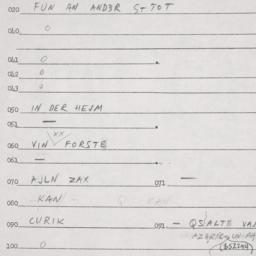 020 FUN AN ANDƏR STOT
040 0
041 0
042 0
043 0
050 IN DER HEJM
051 —
060 VIN FORSTE
xx
061 —
070 AJLN ZAX 071 —
080 KAN
090 CURIK 091 — QSALTE VAN
100 0 (652244)